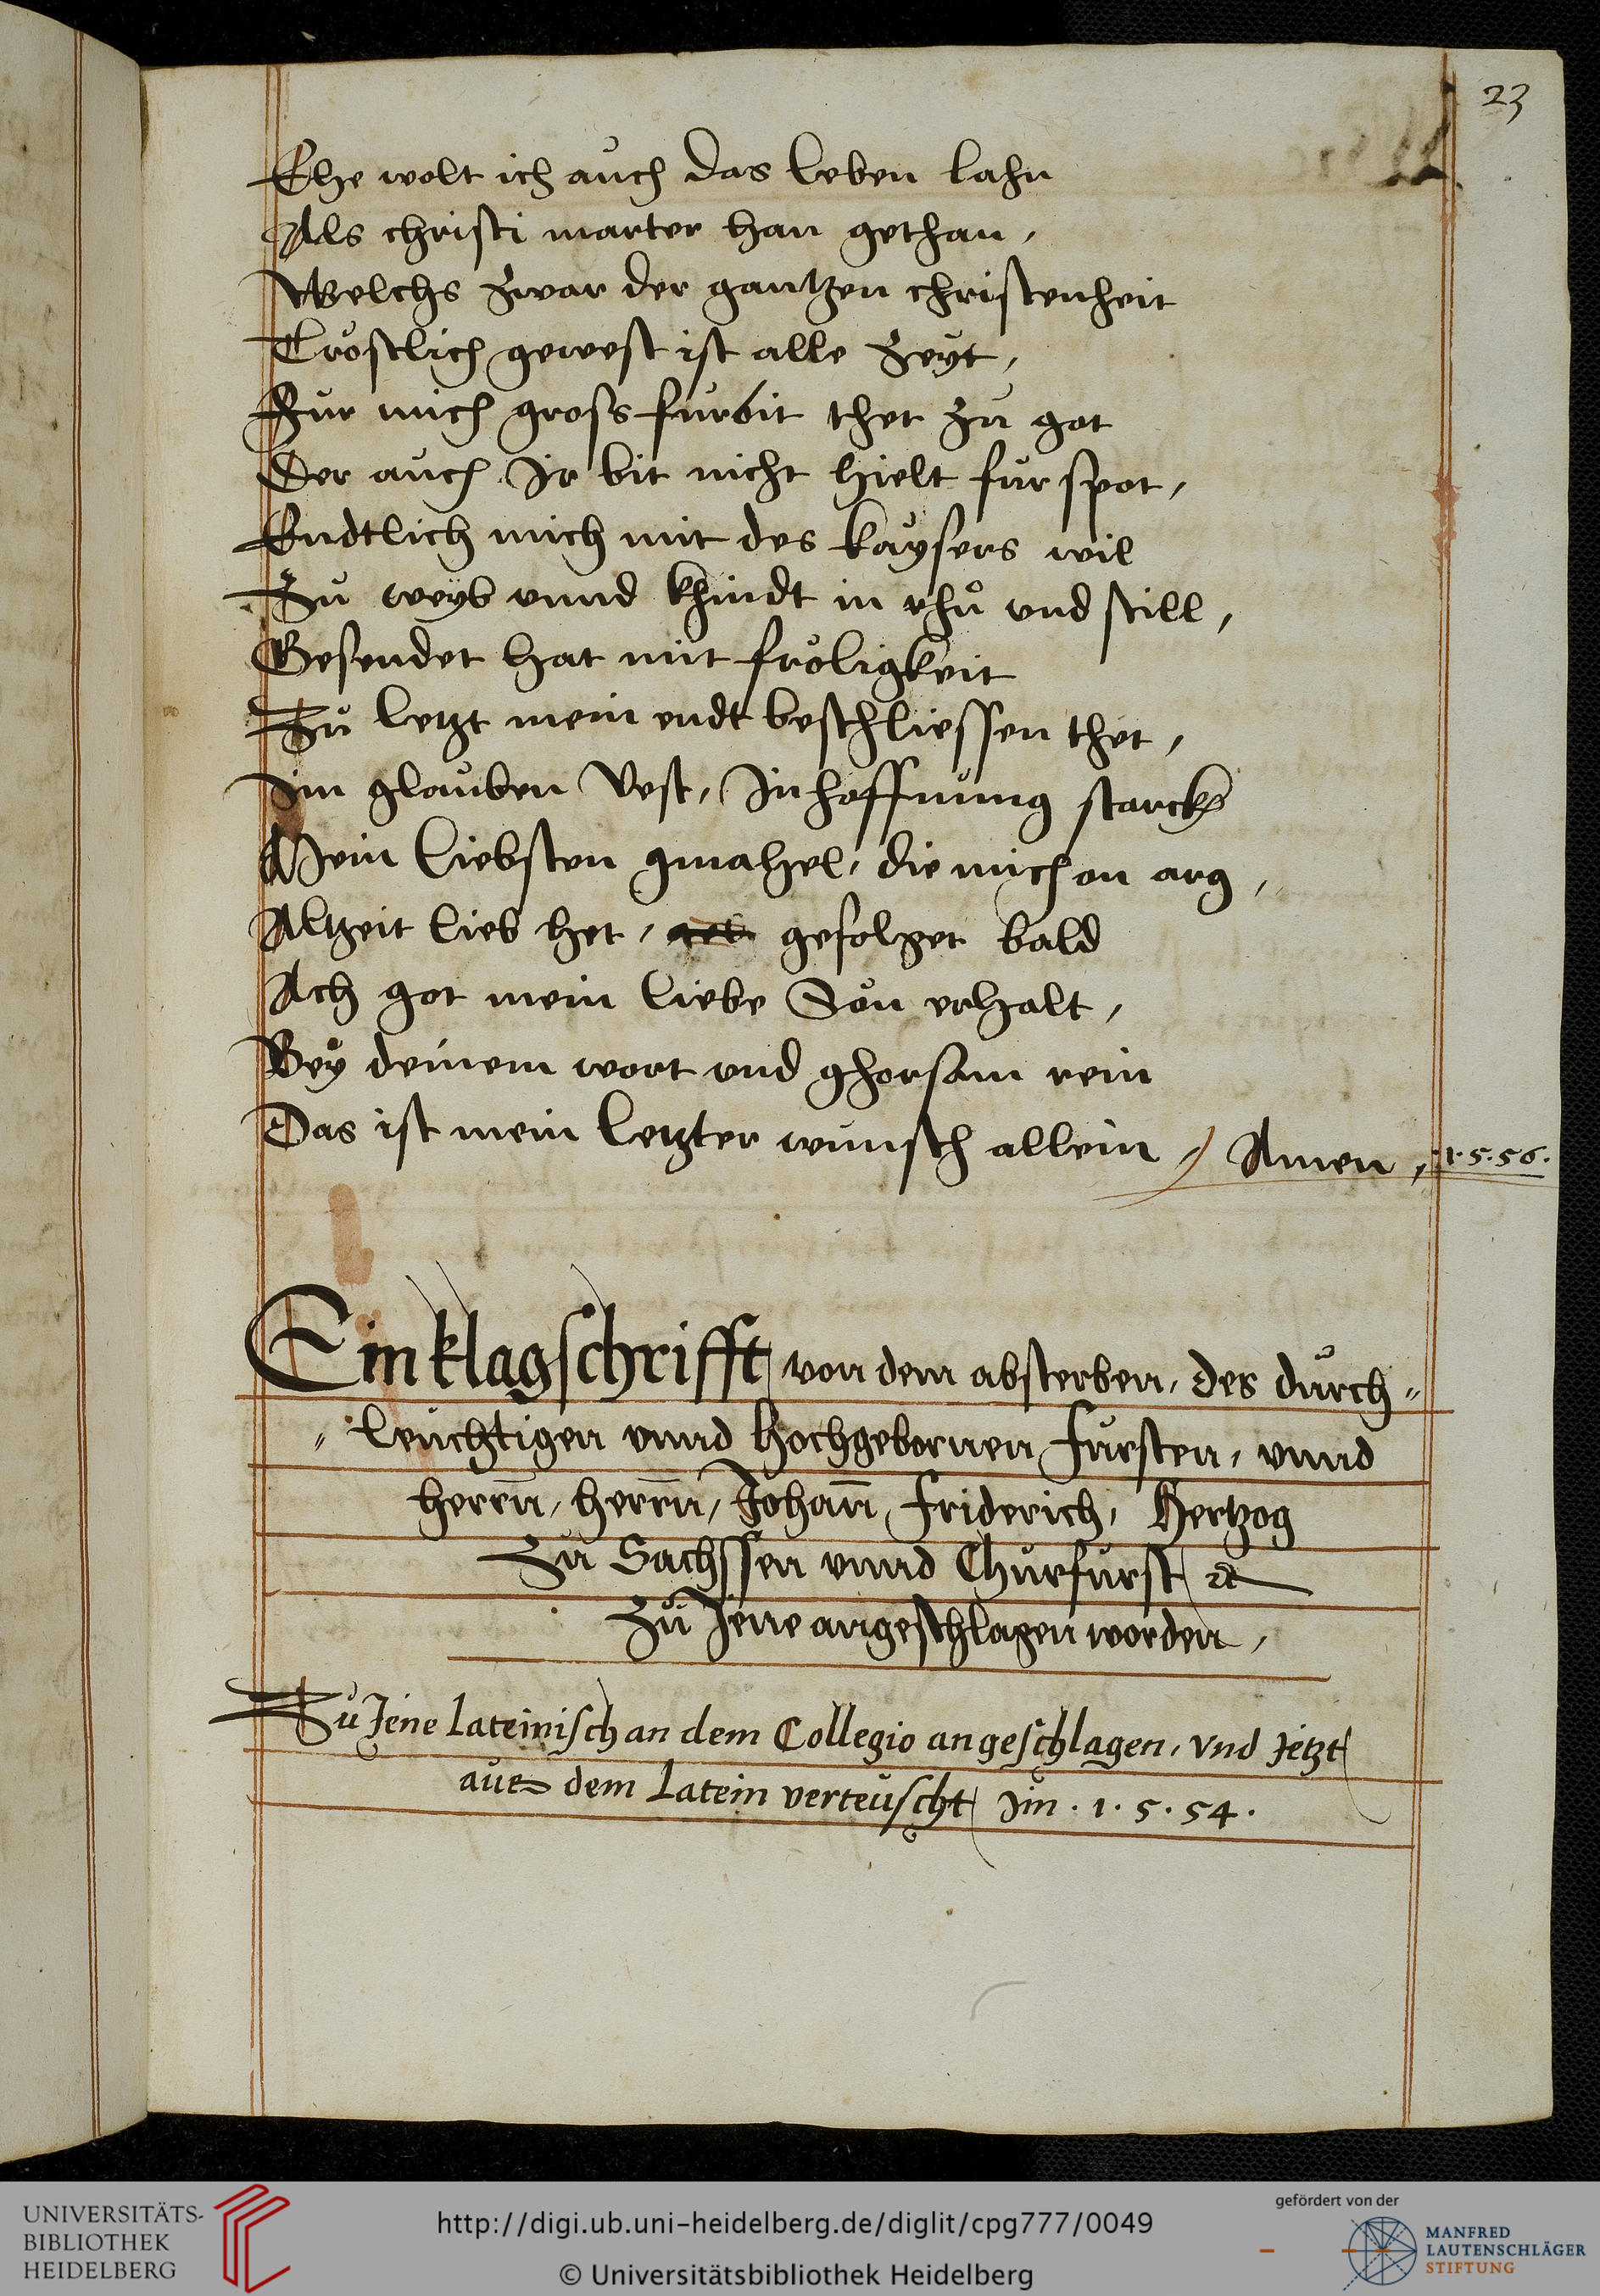 23
Ehe wolt ich auch das leben lahn
Als christi marter han gethan,
Welchs zwar der gantzen christenheit
Tröstlich gewest ist alle zeyt,
Fur mich gross furbit thet zu got
Der auch Ir bit nicht hielt fur spot,
Endtlich mich mit des kaysers wil
Zu weyb vnnd khindt in rhů vnd still,
Gesendet hat mit fröligkeit
Zů letzt mein endt beschliessen thet,
Im glauben Vest, In hoffnung starck
Mein liebsten gmahel, die mich on arg,
Altzeit lieb het, gefolget bald
Ach got mein liebe Sön erhalt,
Bey deinem wort vnd ghorsam rein
Das ist mein letzter wunsch allein, Amen, ·1·5·56·
Ein klagschrifft von dem absterben, des durch=
=leuchtigen vnnd hochgebornen fursten, vnnd
herrn, herrn, Johañ friderich, Hertzog
Zu Sachssen vnnd Churfurst ꝛc
Zu Jene angeschlagen worden,
Zu Jene Lateinisch an dem Collegio angeschlagen, vnd Jetzt
aus dem Latein verteuscht Im · 1 · 5 · 54 ·
UNIVERSITÄTS-
BIBLIOTHEK
HEIDELBERG
http://digi.ub.uni-heidelberg.de/diglit/cpg777/0049
© Universitätsbibliothek Heidelberg
gefördert von der
MANFRED
LAUTENSCHLÄGER
STIFTUNG